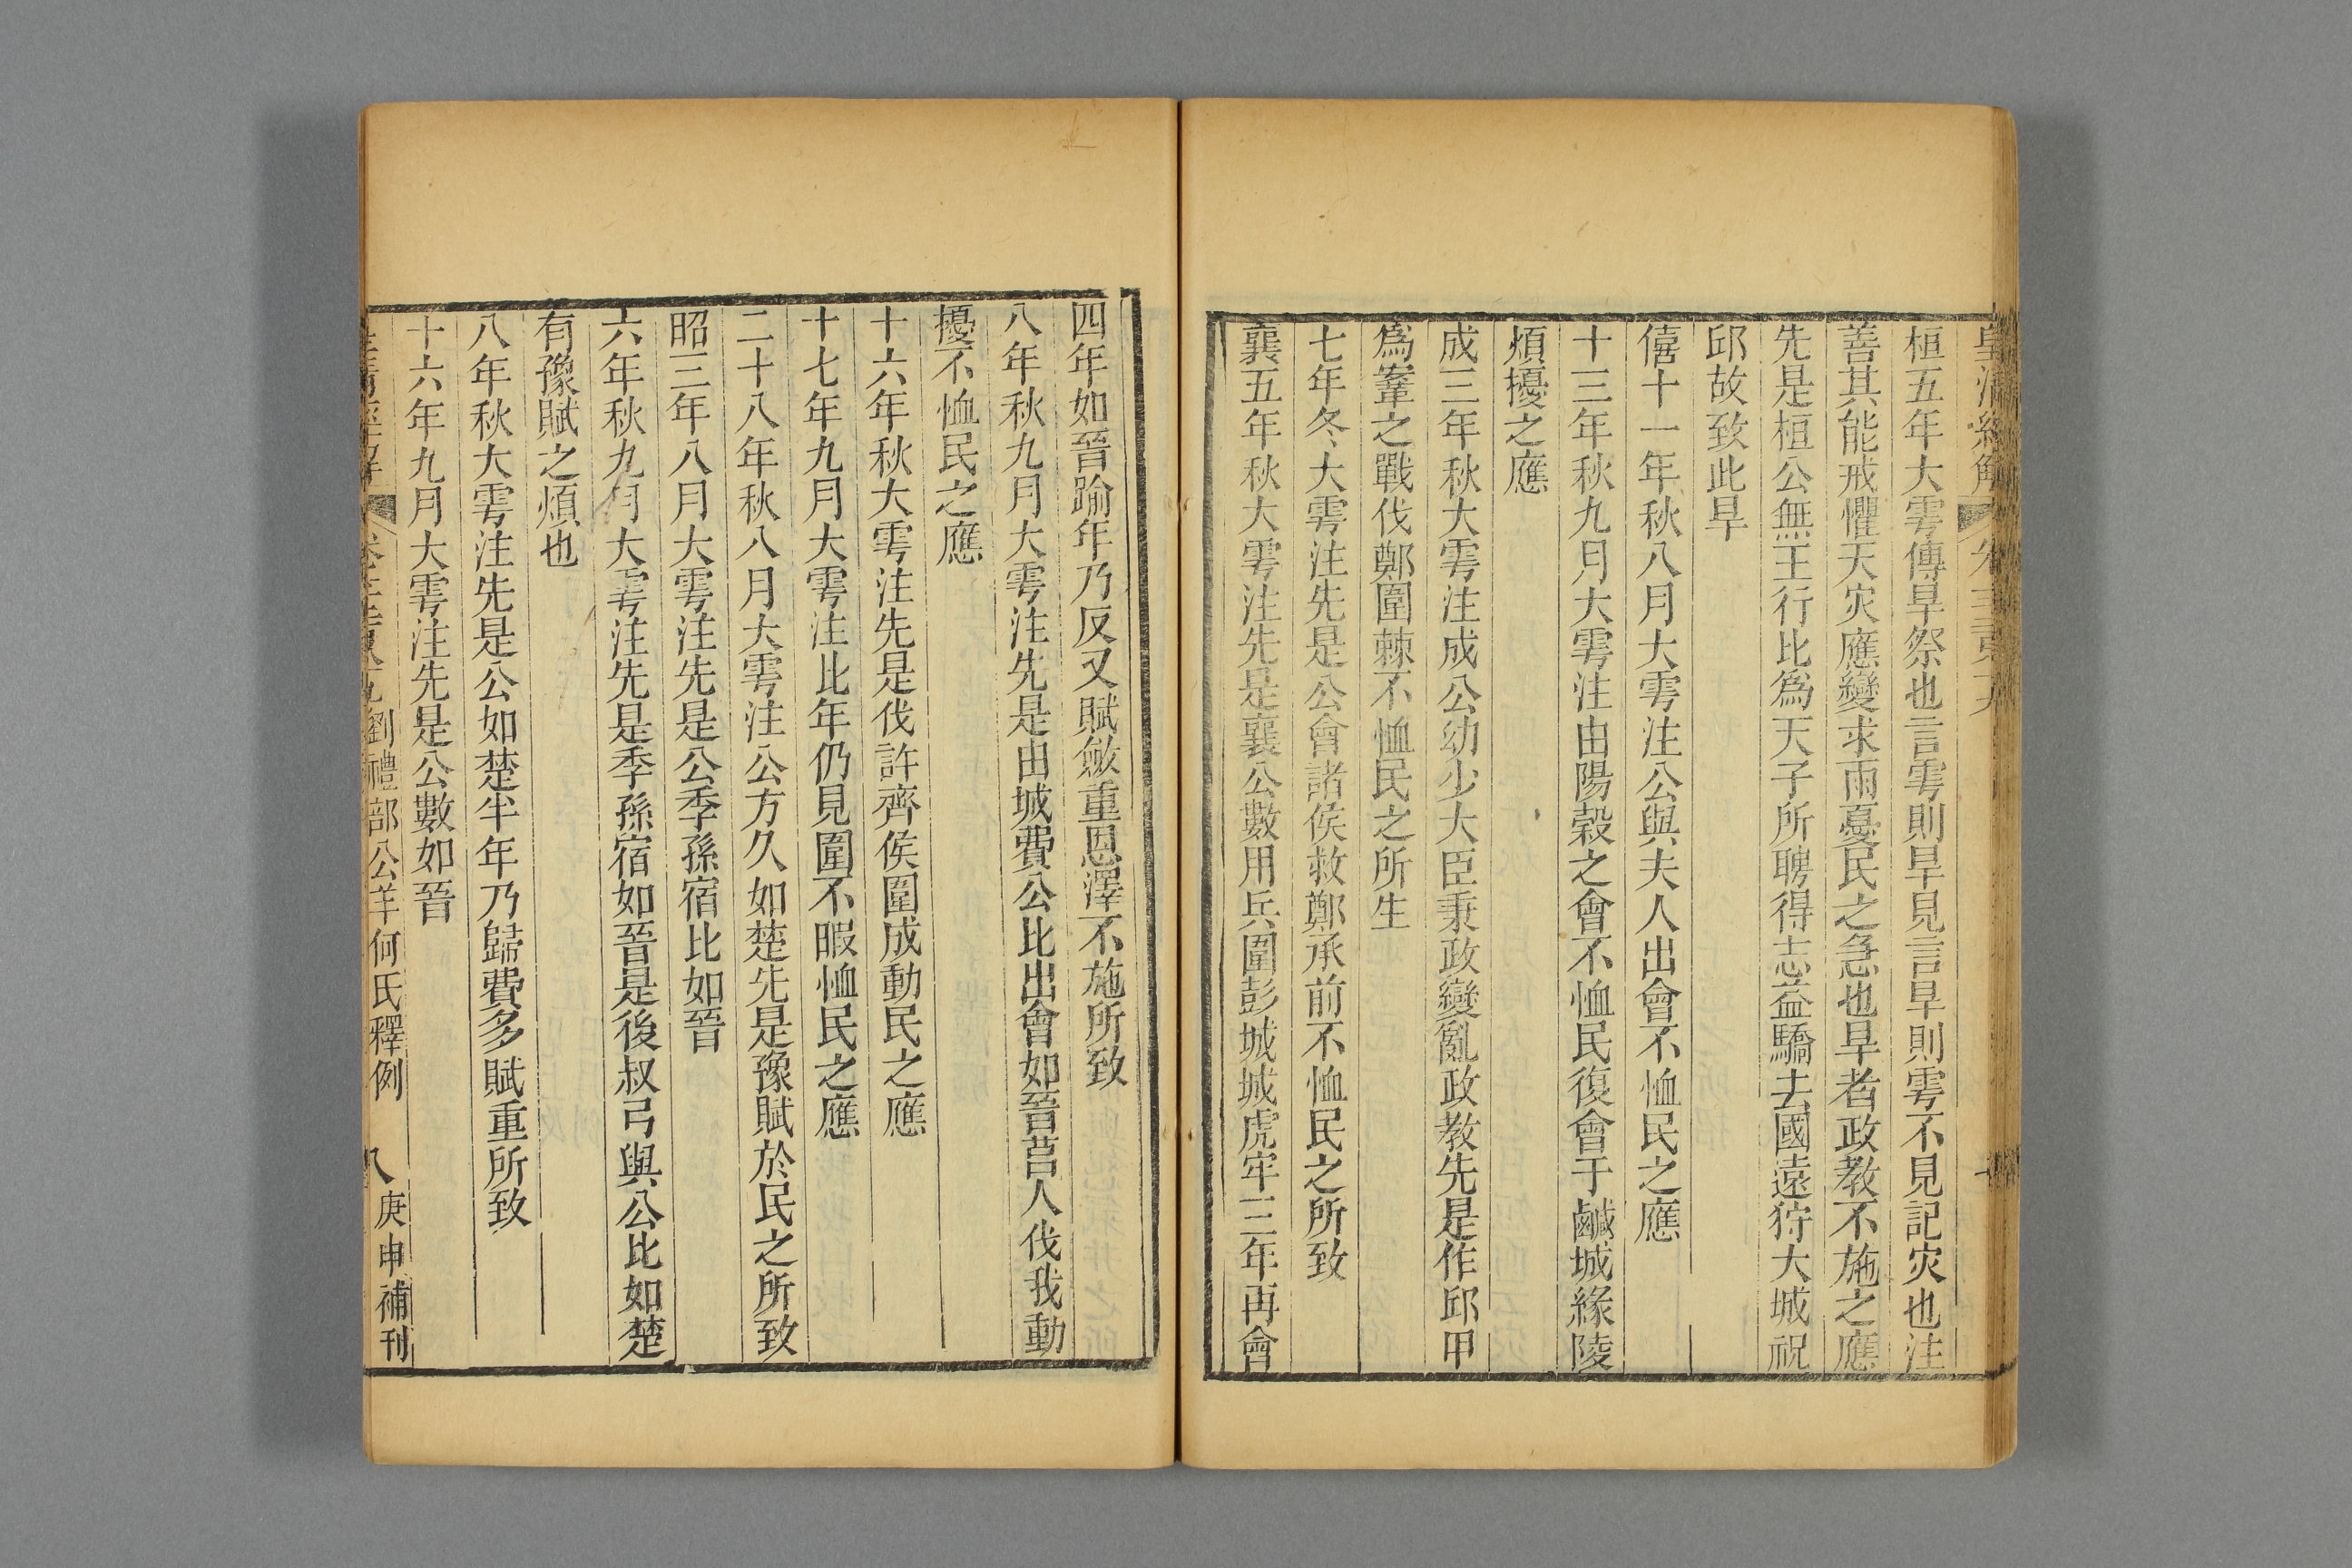 皇清經解
桓五年大雩傳旱祭也言雩則旱見言旱則雩不見記灾也注
善其能戒懼天灾應變求雨憂民之急也旱者政教不施之應
先是桓公無王行比爲天子所聘得志益驕去國遠狩大城祝
邱故致此旱
僖十一年秋八月大雩注公與夫人出會不恤民之應
十三年秋九月大雩注由陽穀之會不恤民復會于鹹城緣陵
煩擾之應
成三年秋大雩注成公幼少大臣秉政變亂政教先是作邱甲
爲鞌之戰伐鄭圍棘不恤民之所生
七年冬大雩注先是公會諸侯救鄭承前不恤民之所致
襄五年秋大雩注先是襄公數用兵圍彭城城虎牢三年再會
四年如晉踰年乃反又賦斂重恩澤不施所致
八年秋九月大雩注先是由城費公比出會如晉莒人伐我動
擾不恤民之應
十六年秋大雩注先是伐許齊侯圍成動民之應
十七年九月大雩注比年仍見圍不暇恤民之應
二十八年秋八月大雩注公方久如楚先是豫賦於民之所致
昭三年八月大雩注先是公季孫宿比如晉
六年秋九月大雩注先是季孫宿如晉是後叔弓與公比如楚
有豫賦之煩也
八年秋大雩注先是公如楚半年乃歸費多賦重所致
十六年九月大雩注先是公數如晉
劉禮部公羊何氏釋例 八 庚申補刊